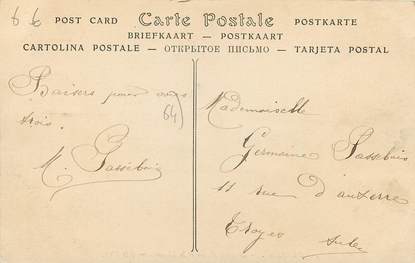 66
POST CARD Carte Postale POSTKARTE
BRIEFKAART — POSTKAART
CARTOLINA POSTALE — ОТКРЫТОЕ ПИСЬМО — TARJETA POSTAL
Baisers pour vous
trois.
64)
Mademoiselle
Germaine Gassebois
11 rue d'auxerre
Troyes
Aube